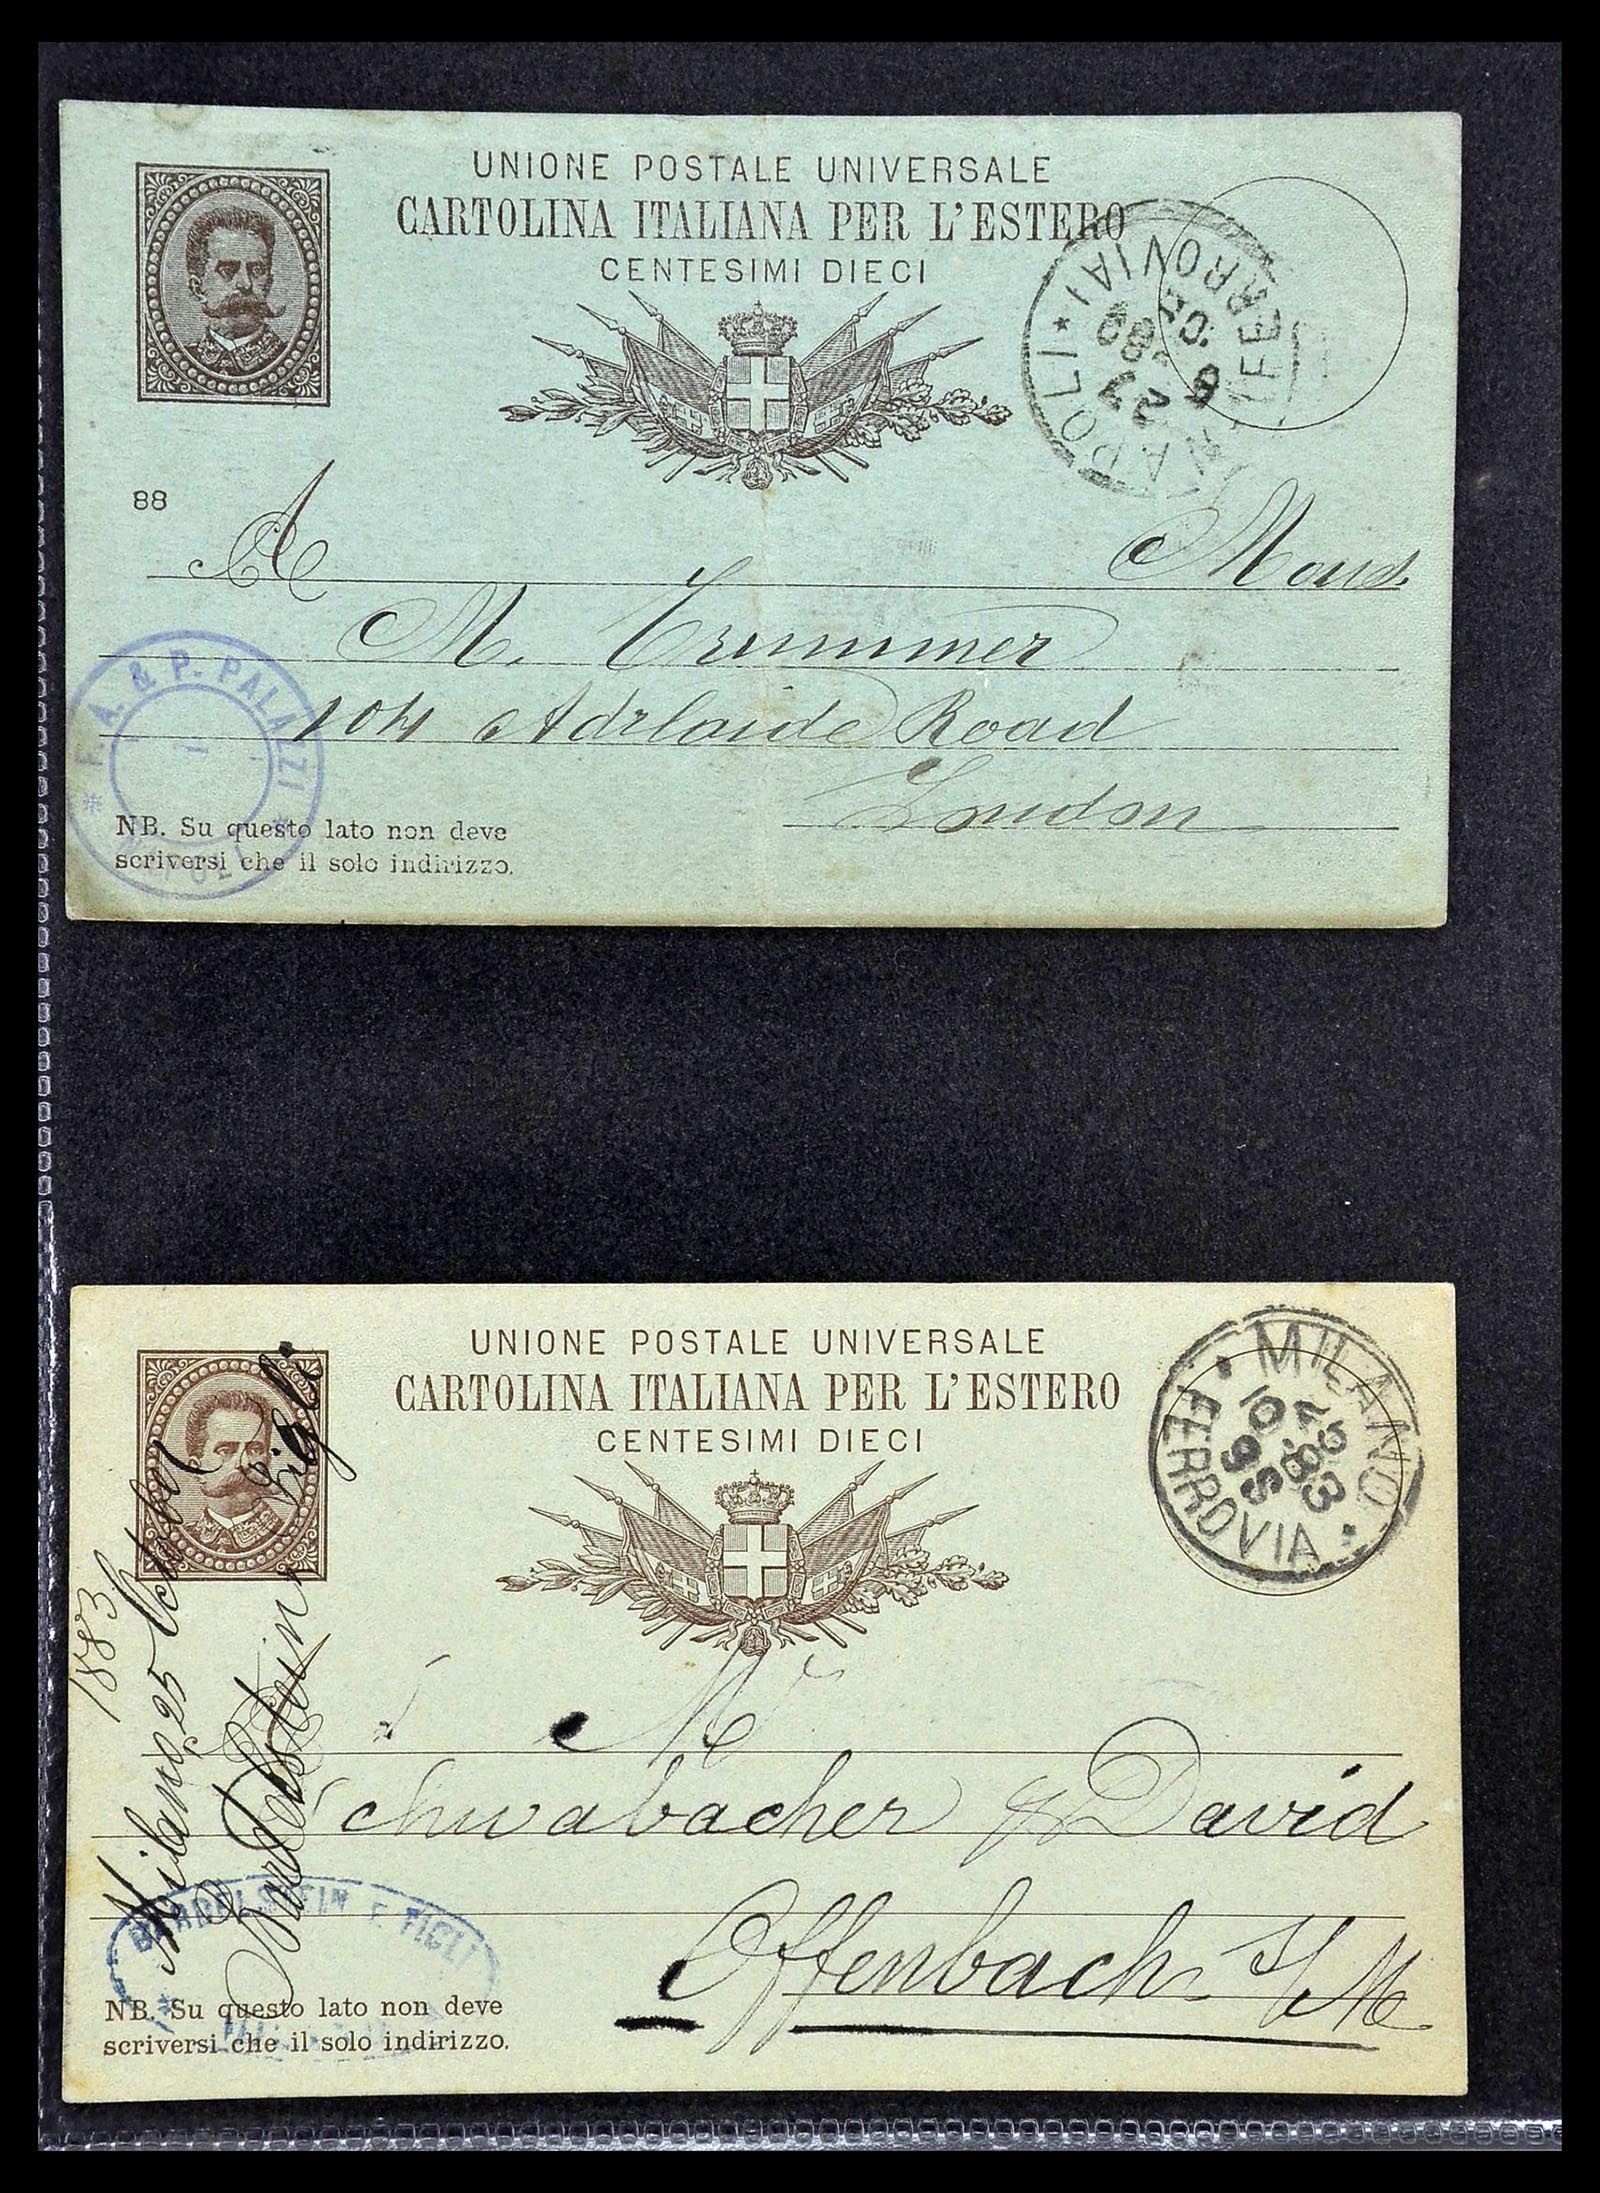 UNIONE POSTALE UNIVERSALE
CARTOLINA ITALIANA PER L'ESTERO
CENTESIMI DIECI
NAPOLI * (FERROVIA)
88
A Mons.
M. Trummer
104 Adelaide Road
London
F. A. & P. PALAZZI
NB. Su questo lato non deve
scriversi che il solo indirizzo.
UNIONE POSTALE UNIVERSALE
CARTOLINA ITALIANA PER L'ESTERO
CENTESIMI DIECI
* MILANO *
FERROVIA
10-83
9S
1883
Milano, 25
Bardelstein & figli
M
Schwabacher & David
Offenbach a/M
BARDELSTEIN E FIGLI
NB. Su questo lato non deve
scriversi che il solo indirizzo.